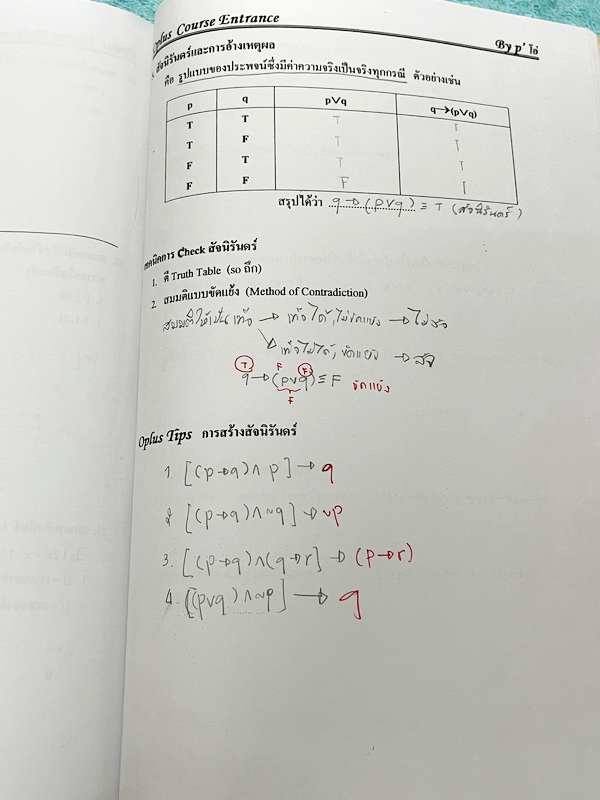 Oplus Course Entrance
By p' โอ๋
สัจนิรันดร์และการอ้างเหตุผล
คือ รูปแบบของประพจน์ซึ่งมีค่าความจริงเป็นจริงทุกกรณี ตัวอย่างเช่น
p q p∨q q→(p∨q)
T T T T
T F T T
F T T T
F F F T
สรุปได้ว่า q→(p∨q) ≡ T (สัจนิรันดร์)
เทคนิคการ Check สัจนิรันดร์
1. ตี Truth Table (so ถึก)
2. สมมติแบบขัดแย้ง (Method of Contradiction)
สมมติให้เป็นเท็จ → เท็จได้, ไม่ขัดแย้ง → ไม่สัจ
เท็จไม่ได้, ขัดแย้ง → สัจ
T F F
q→(p∨q) ≡ F ขัดแย้ง
F
Oplus Tips การสร้างสัจนิรันดร์
1. [(p→q)∧p]→q
2. [(p→q)∧~q]→~p
3. [(p→q)∧(q→r]→(p→r)
4. [(p∨q)∧~p]→q